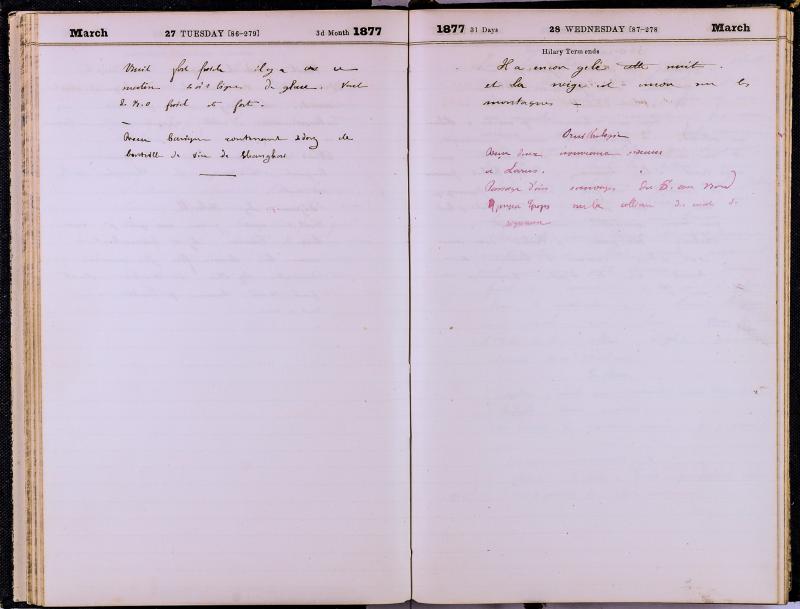 March 27 TUESDAY [86-279] 3d Month 1877
Nuit fort froide il y a eu ce
matin trois lignes de glace. Vent
de N.O froid et fort.
contenant 2 douz de
bouteille de vin de Shanghai
1877 31 Days 28 WEDNESDAY [87-278 March
Hilary Term ends
Il a encore gelé cette nuit.
et la neige est encore sur les
montagnes
Ornithologie
deux nouveaux
à Larus.
Passage d'oies sauvages du S. au Nord
sur la colline du